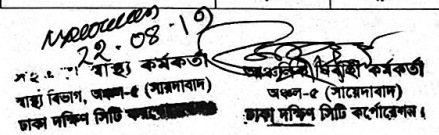 22.08.19
স্বাস্থ্য কর্মকর্তা
স্বাস্থ্য বিভাগ, অঞ্চল-৫ (সায়েদাবাদ)
ঢাকা দক্ষিণ সিটি কর্পোরেশন
নির্বাহী কর্মকর্তা
অঞ্চল-৫ (সায়েদাবাদ)
ঢাকা দক্ষিণ সিটি কর্পোরেশন।